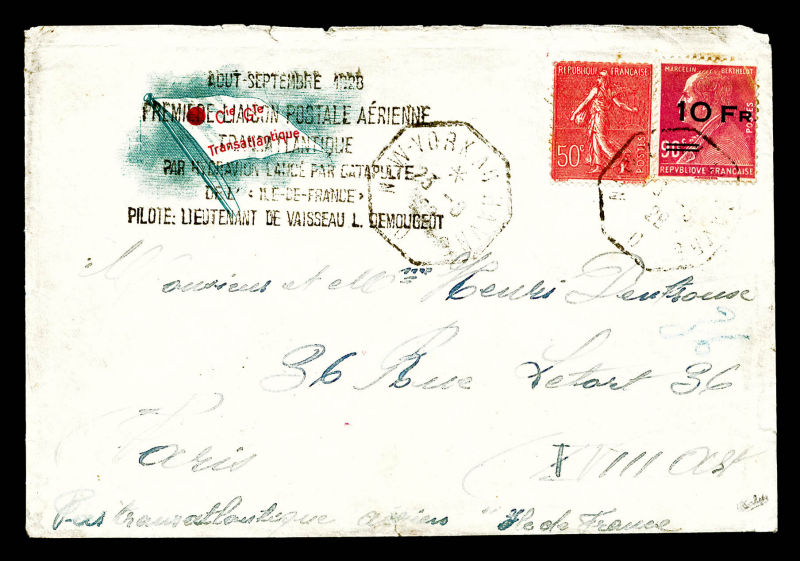 AOUT-SEPTEMBRE 1928
PREMIERE LIAISON POSTALE AÉRIENNE
TRANSATLANTIQUE
PAR HYDRAVION LANCÉ PAR CATAPULTE
DE L' « ILE-DE-FRANCE »
PILOTE: LIEUTENANT DE VAISSEAU L. DEMOUGEOT
Cie Gle
Transatlantique
NEW YORK AU HAVRE
23
REPUBLIQUE FRANÇAISE
50c
POSTES
MARCELIN BERTHELOT
10 FR
90c
POSTES
REPVBLIQVE FRANÇAISE
Monsieur et Mme Henri
36 Rue Letort 36
Paris
XVIII arr
Par transatlantique aérien "Ile de France